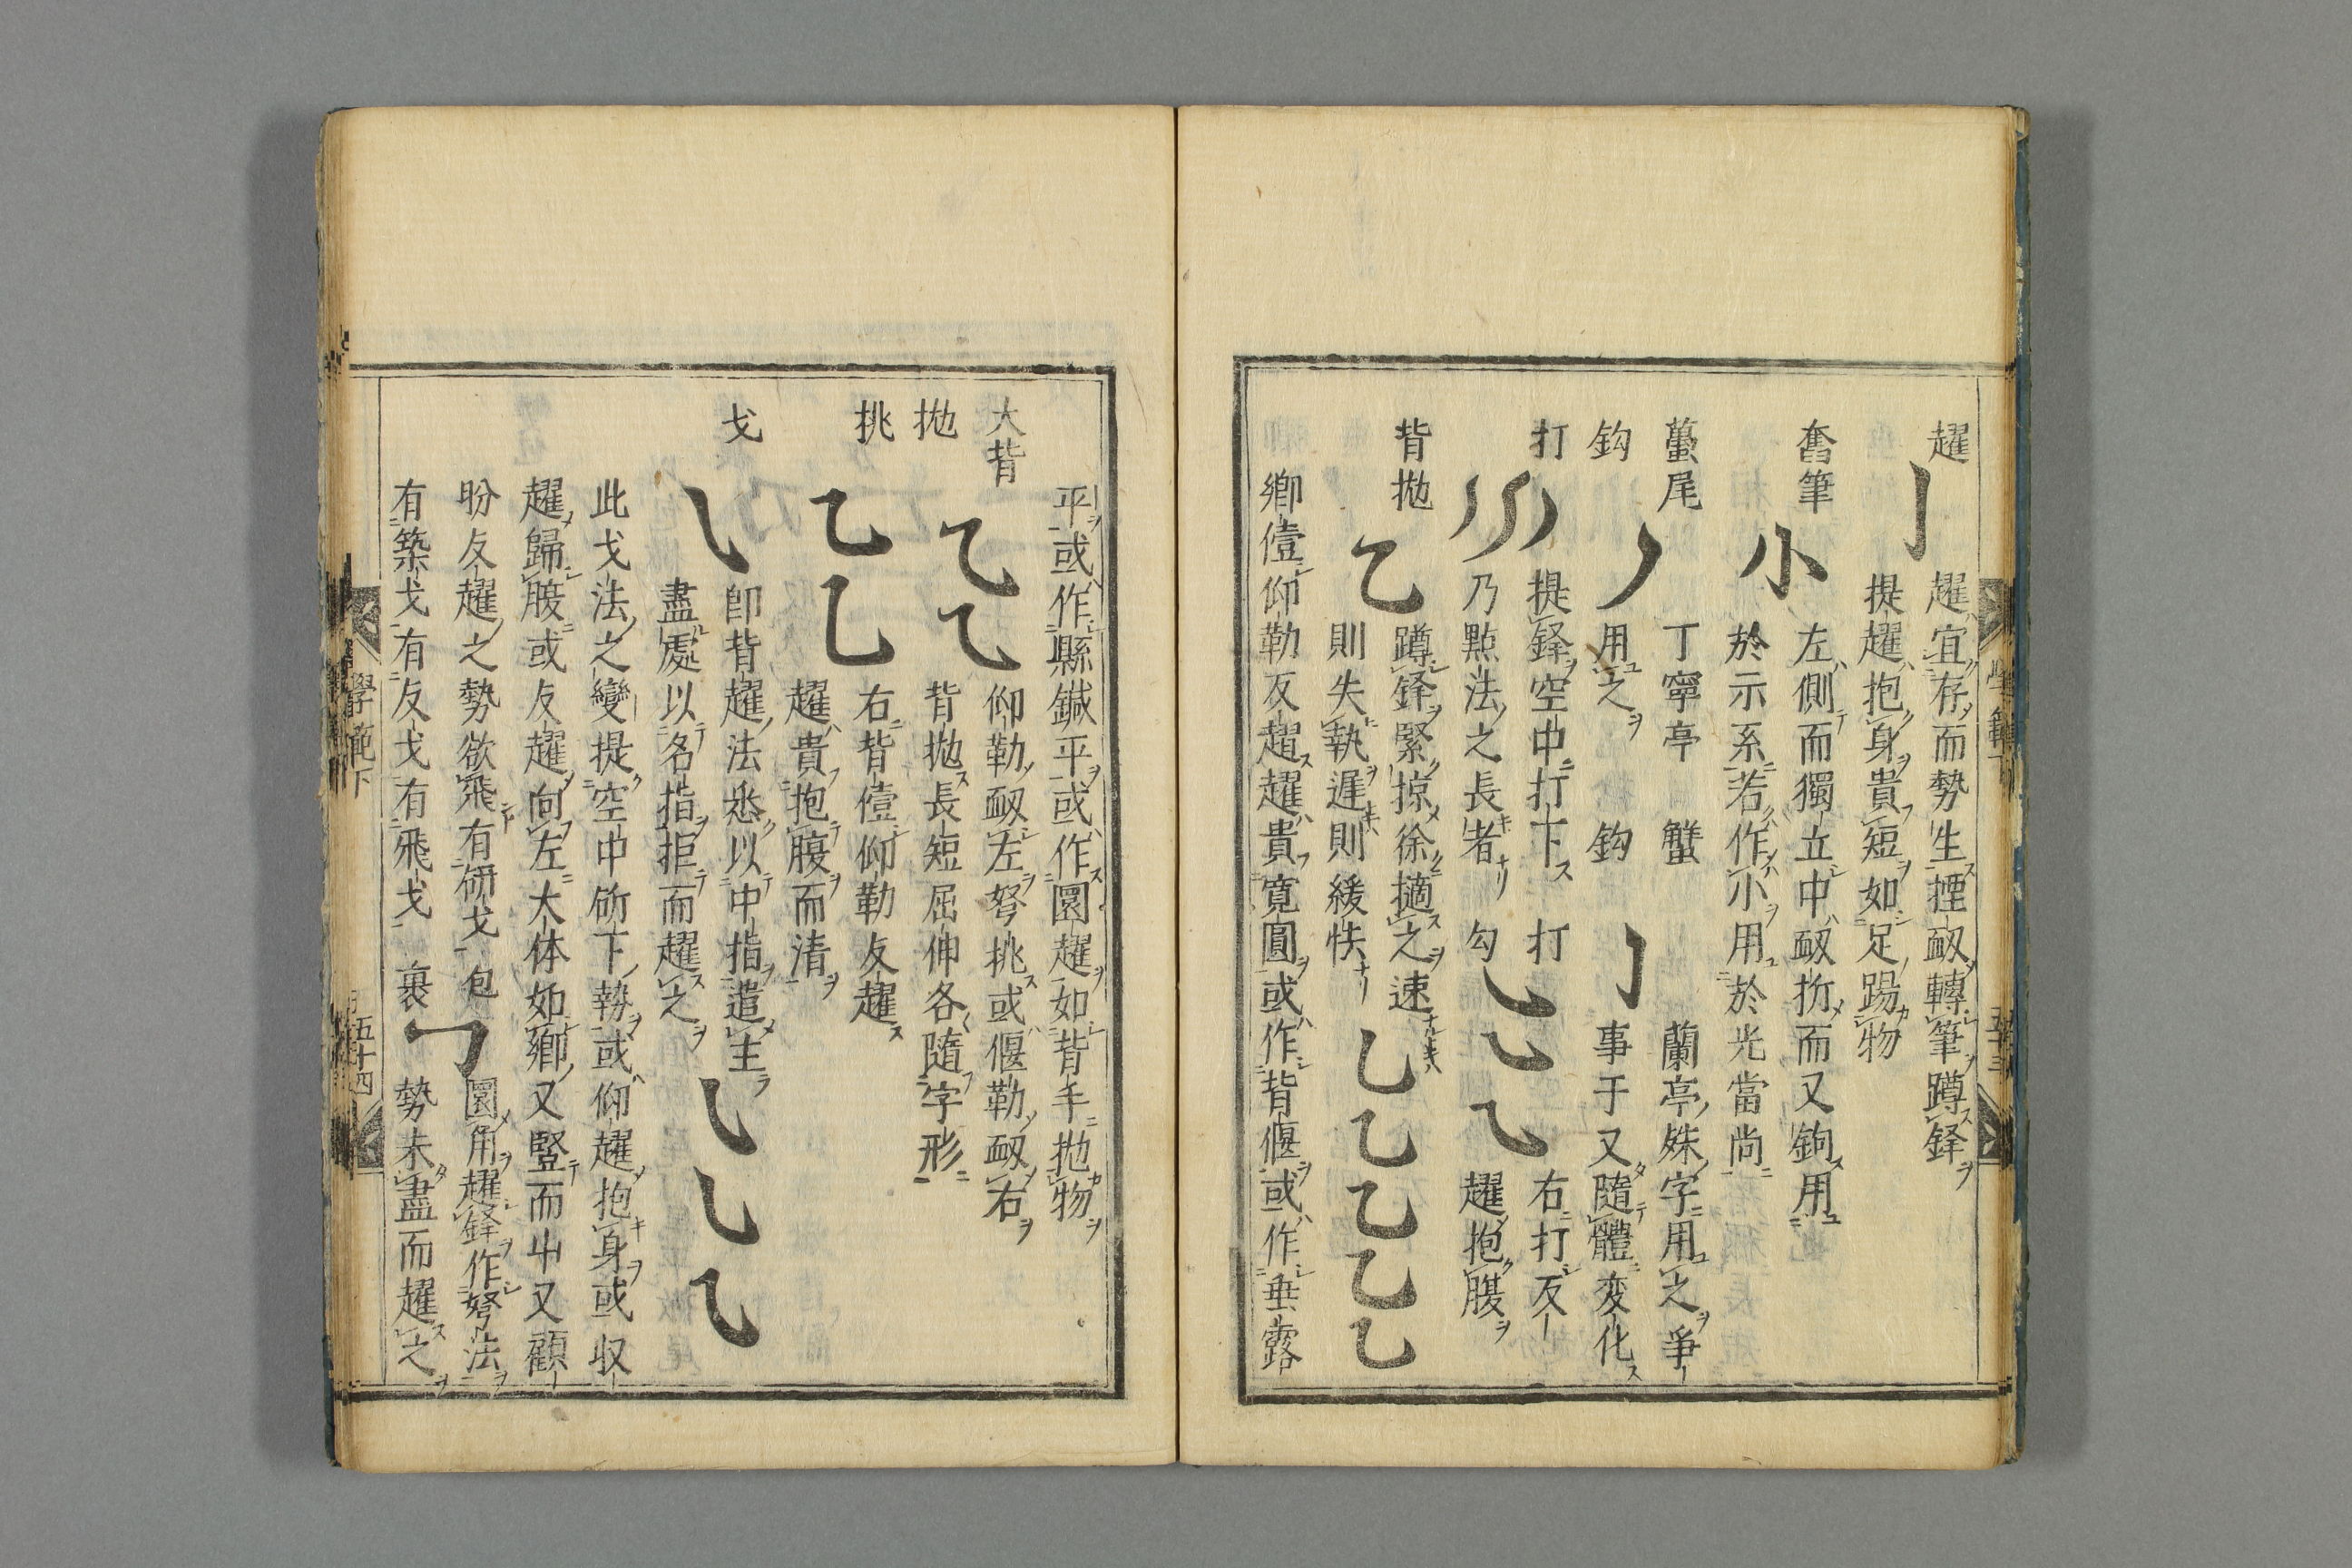 趯 趯宜存而勢生揠衂轉筆蹲鋒
提趯抱身貴短如足踢物
奮筆 左側而獨立中衂折而又鉤用
小 於示系若作小用於光當尚
蠆尾 丁寧亭 蟹 蘭亭殊字用之爭
鈎 用之 鈎 事于又隨體変化
打 提鋒空中打下 打 右打反
乃㸃法之長者 勾 趯抱腹
背拋 蹲鋒緊掠徐擿之速
則失執遲則緩怏
鄉僖仰勒反趯趯貴寛圓或作背偃或作垂露
平或作縣鍼平或作圜趯如背手拋物
大背 仰勒衂左努挑或偃勒衂右
拋 背拋長短屈伸各隨字形
挑 右背僖仰勒反趯
趯貴抱腹而清
戈 卽背趯法悉以中指遣主
盡處以名指拒而趯之
此戈法之變提空中斫下勢或仰趯抱身或収
趯歸腹或反趯向左大体如鄉又豎而㞢又顧
盼反趯之勢欲飛有研戈 包 圜用趯鋒作努法
有築戈有反戈有飛戈 裹 勢未盡而趯之
學範下
五十四